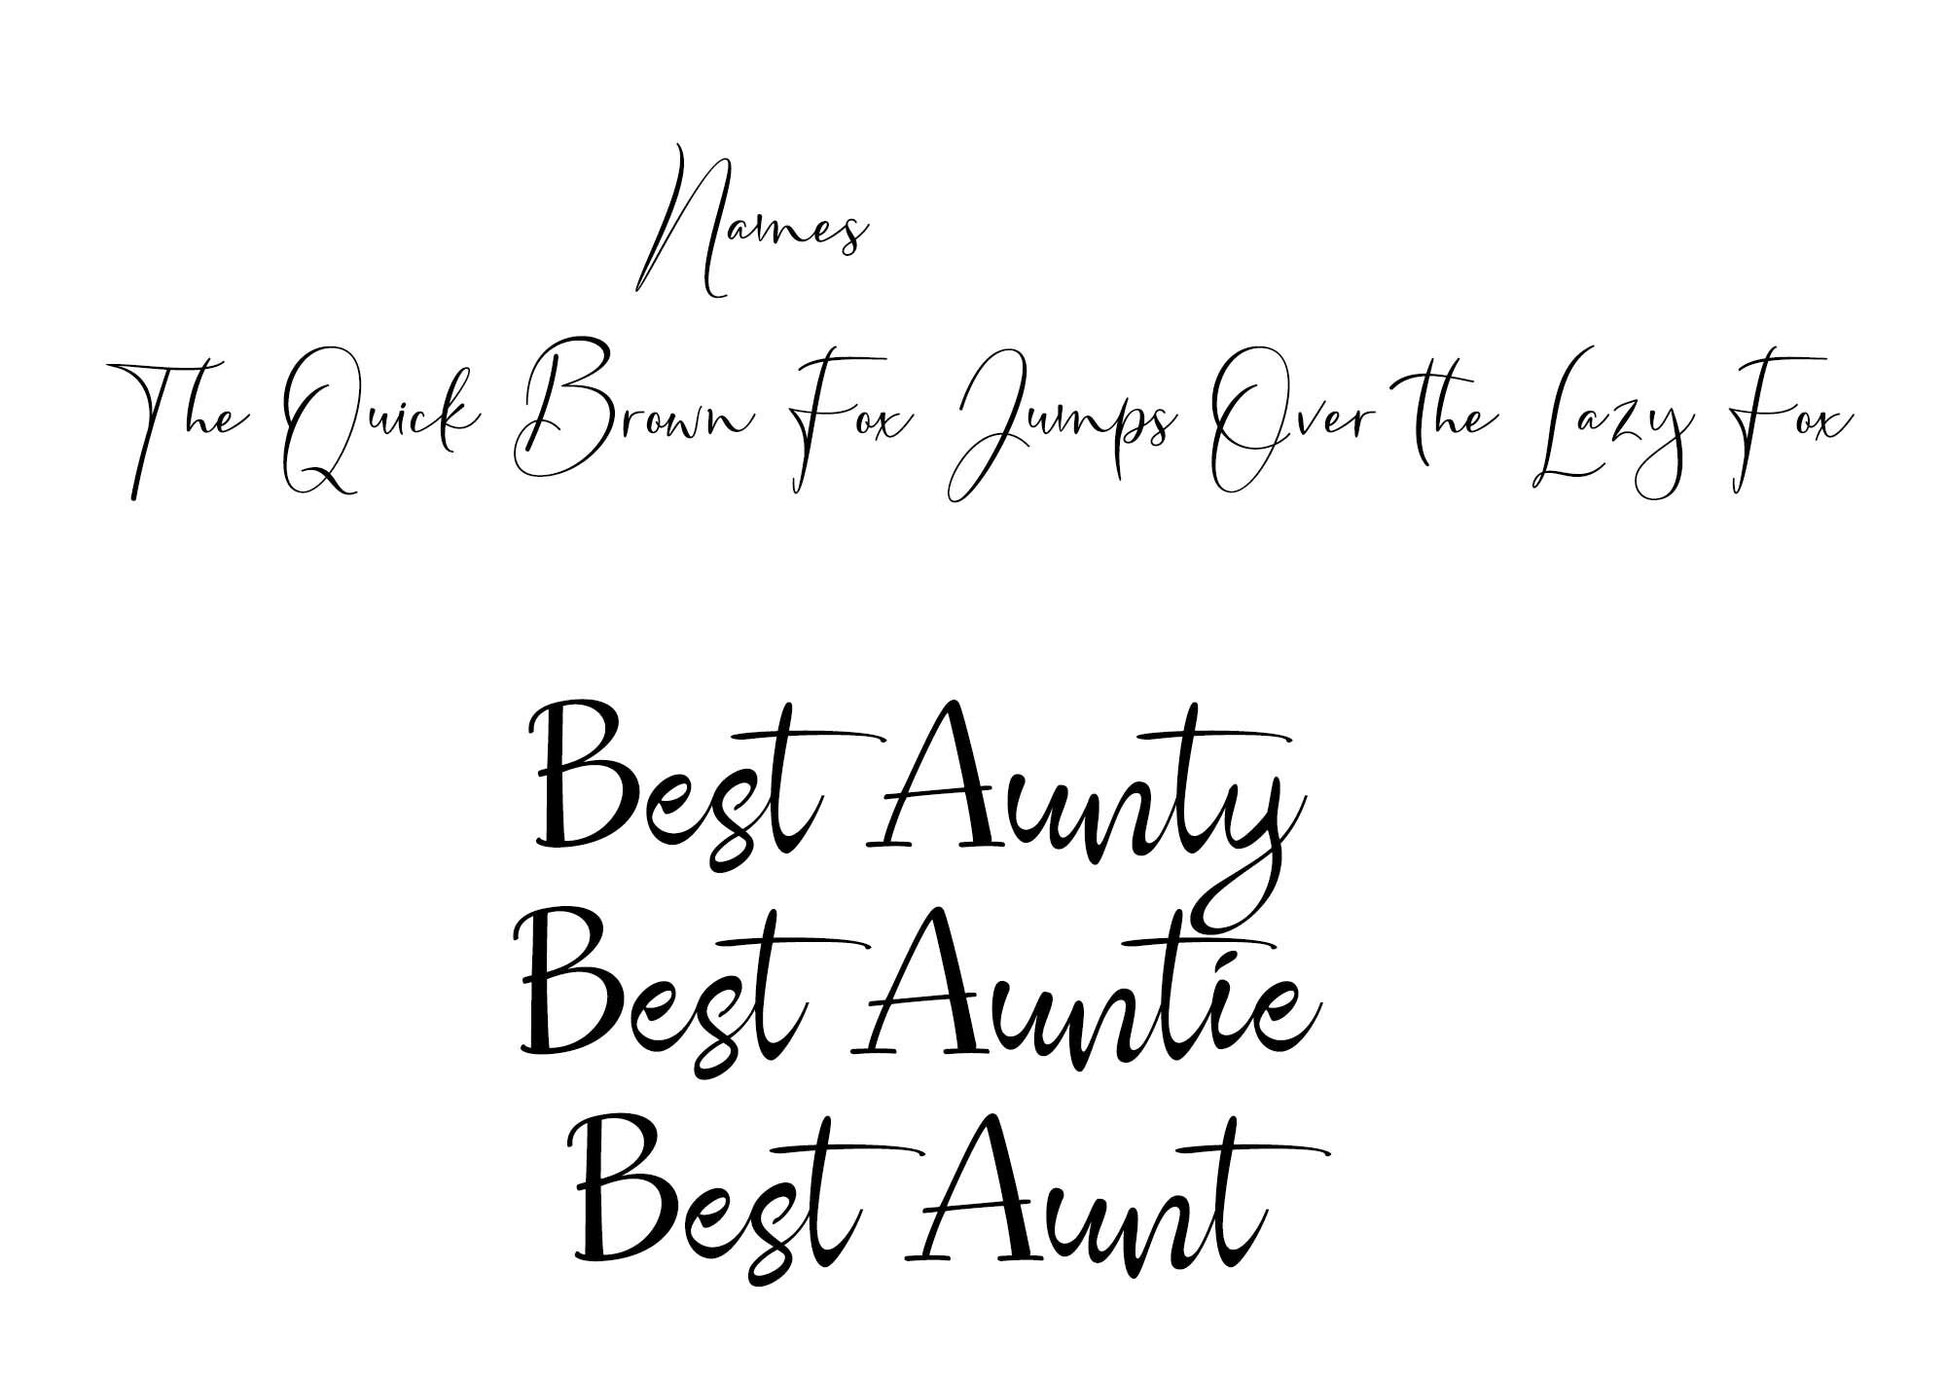 Names
The Quick Brown Fox Jumps Over the Lazy Fox
Best Aunty
Best Auntie
Best Aunt